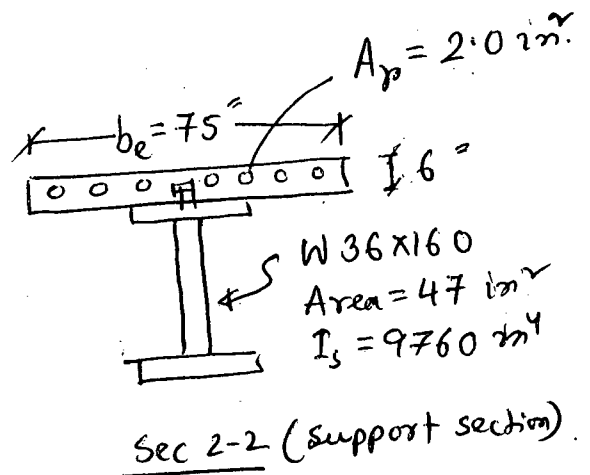 A_r = 2.0 in².
b_e = 75"
6"
W 36X160
Area = 47 in²
I_s = 9760 in⁴
Sec 2-2 (support section).